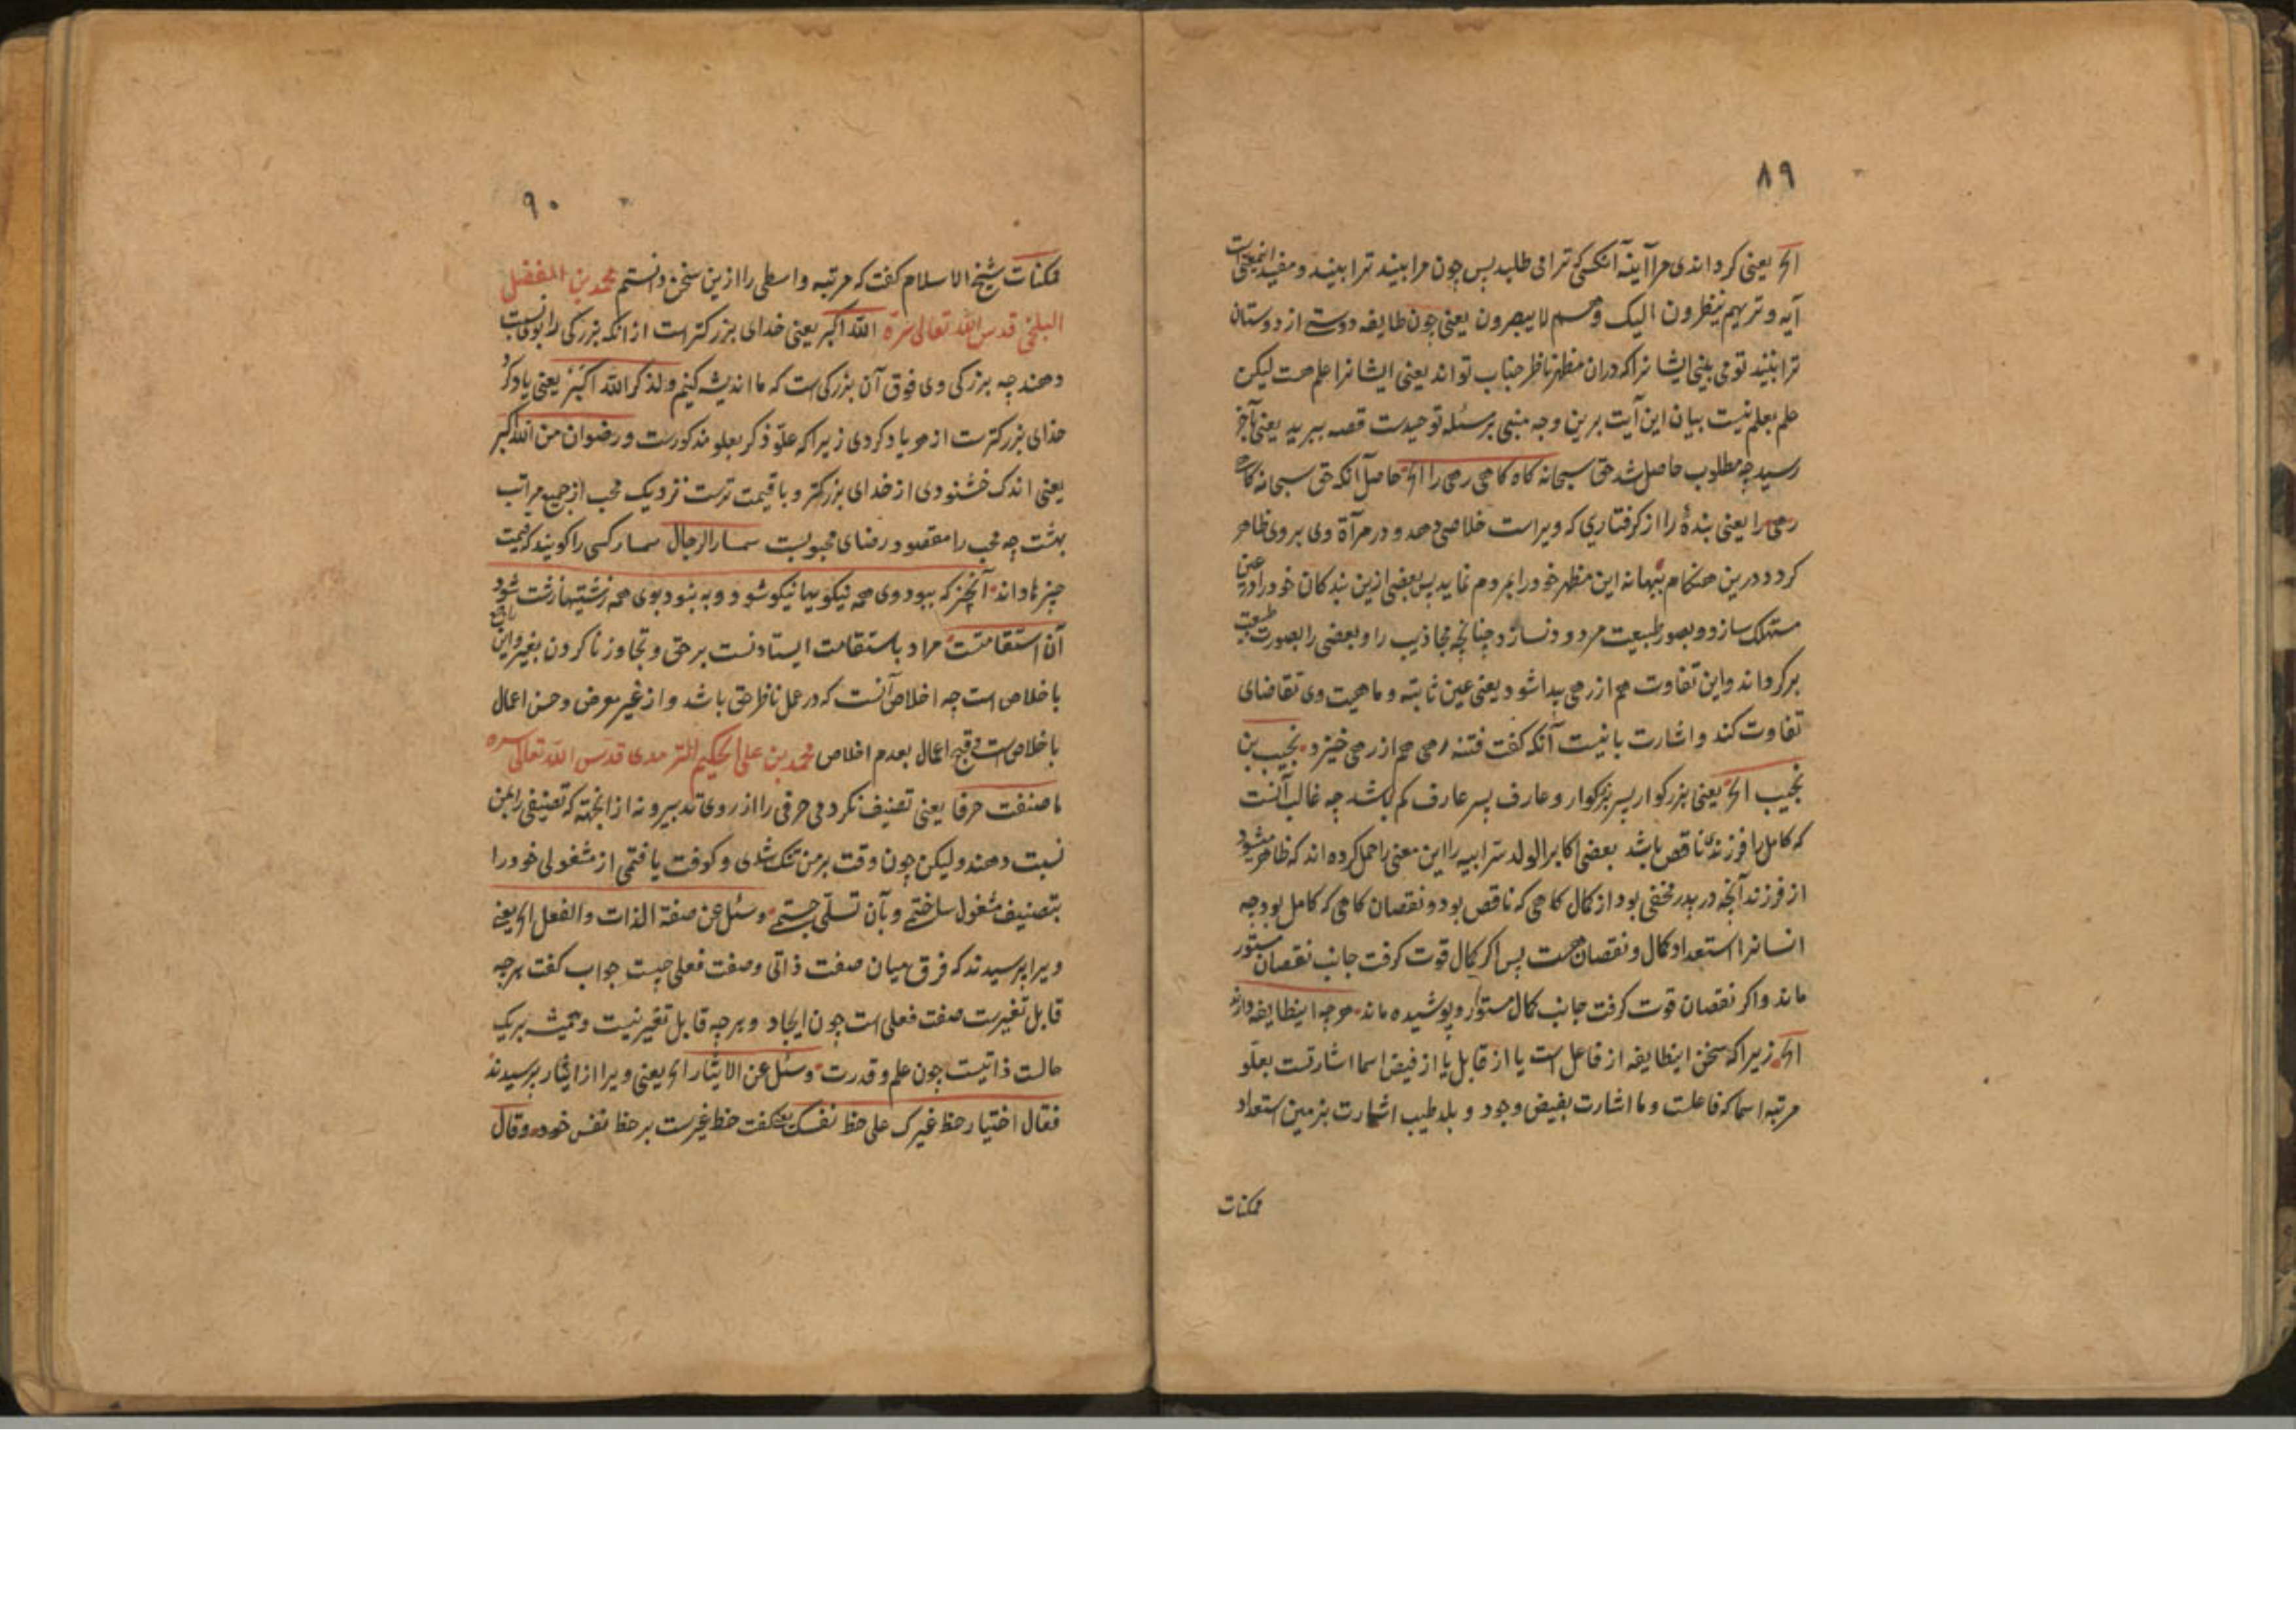 ۸۹
الخ یعنی کرداندی مرا آینه آنکسی که ترا می طلبد پس چون مرا بینند ترا بینند و مفید اینمعنیست
آیه و تریهم ینظرون الیک و هم لا یبصرون یعنی چون طایفه دوستی از دوستان
ترا بینند تو می بینی ایشانرا که دران مظهر ناظر جناب تواند یعنی ایشانرا علم هست لیکن
علم بعلم نیست بیان این آیت برین وجه مبنی بر مسئله توحیدست قصه ببرید یعنی بآخر
رسید چه مطلوب حاصل شد حق سبحانه کاه کاهی رهی را الخ حاصل آنکه حق سبحانه کاهی
رهی را یعنی بندهٔ را از کرفتاری که ویراست خلاصی دهد و در مرآة وی بر وی ظاهر
کردد درین هنکام ببهانه این مظهر خود را بمردم نماید پس بعضی ازین بندکان خود را درین عین
مستهلک سازد و بصور طبیعت مردود نسازد چنانچه مجاذیب را و بعضی را بصورت طبیعت
برکرداند و این تفاوت هم از رهی پیدا شود یعنی عین ثابته و ماهیت وی تقاضای
تفاوت کند و اشارت باینست آنکه کفت فتنه رهی هم از رهی خیزد نجیب بن
نجیب الخ یعنی بزرکوار پسر بزرکوار و عارف پسر عارف کم باشد چه غالب آنست
که کامل را فرزند ناقص باشد بعضی اکابر الولد سر ابیه را این معنی را حمل کرده اند که ظاهر میشود
از فرزند آنچه در پدر مخفی بود از کمال کاهی که ناقص بود و نقصان کاهی که کامل بود چه
انسانرا استعداد کمال و نقصان هست پس اکر کمال قوت کرفت جانب نقصان مستور
ماند و اکر نقصان قوت کرفت جانب کمال مستور و پوشیده ماند هرچه اینطایفه دارند
الخ زیرا که سخن اینطایفه از فاعل است یا از قابل یا از فیض اسما اشارتست بعلو
مرتبه اسما که فاعلست و ما اشارت بفیض وجود و بلد طیب اشارت بزمین استعداد
ممکنات
۹۰
ممکنات شیخ الاسلام کفت که مرتبه واسطی را ازین سخن دانستم محمد بن الفضل
البلخی قدس الله تعالی سره الله اکبر یعنی خدای بزرکتر است از انکه بزرکی را بوی نسبت
دهند چه بزرکی وی فوق آن بزرکی است که ما اندیشه کنیم و لذکر الله اکبر یعنی یاد کرد
خدای بزرکترست از هر یاد کردی زیرا که علو ذکر بعلو مذکورست و رضوان من الله اکبر
یعنی اندک خشنودی از خدای بزرکتر و باقیمت ترست نزدیک محب از جمیع مراتب
بهشت چه محب را مقصود رضای محبوبست سمسار الرجال سمسار کسی را کویند که قیمت
چیزها داند آنچیز که ببود وی همه نیکوییها نیکو شود و به نبود بوی همه زشتیها زشت شود
آن استقامتست مراد باستقامت ایستادنست بر حق و تجاوز نا کردن بغیر و این راجع
باخلاص است چه اخلاص آنست که در عمل ناظر حق باشد و از غیر معرض و حسن اعمال
باخلاص است و قبح اعمال بعدم اخلاص محمد بن علی الحکیم الترمدی قدس الله تعالی سره
ما صنفت حرفا یعنی تصنیف نکردمی حرفی را از روی تدبیر و نه از انجهته که تصنیفی را بمن
نسبت دهند ولیکن چون وقت بر من تنک شدی و کوفت یافتمی از مشغولی خود را
بتصنیف مشغول ساختمی و بآن تسلی جستمی و سئل عن صفة الذات والفعل الخ یعنی
ویرا پرسیدند که فرق میان صفت ذاتی و صفت فعلی چیست جواب کفت هرچه
قابل تغیرست صفت فعلی است چون ایجاد و هرچه قابل تغیر نیست و همیشه بر یک
حالت ذاتیست چون علم و قدرت و سئل عن الایثار الخ یعنی ویرا از ایثار پرسیدند
فقال اختیار حظ غیرک علی حظ نفسک یعنی کفت حظ غیرست بر حظ نفس خود و قال